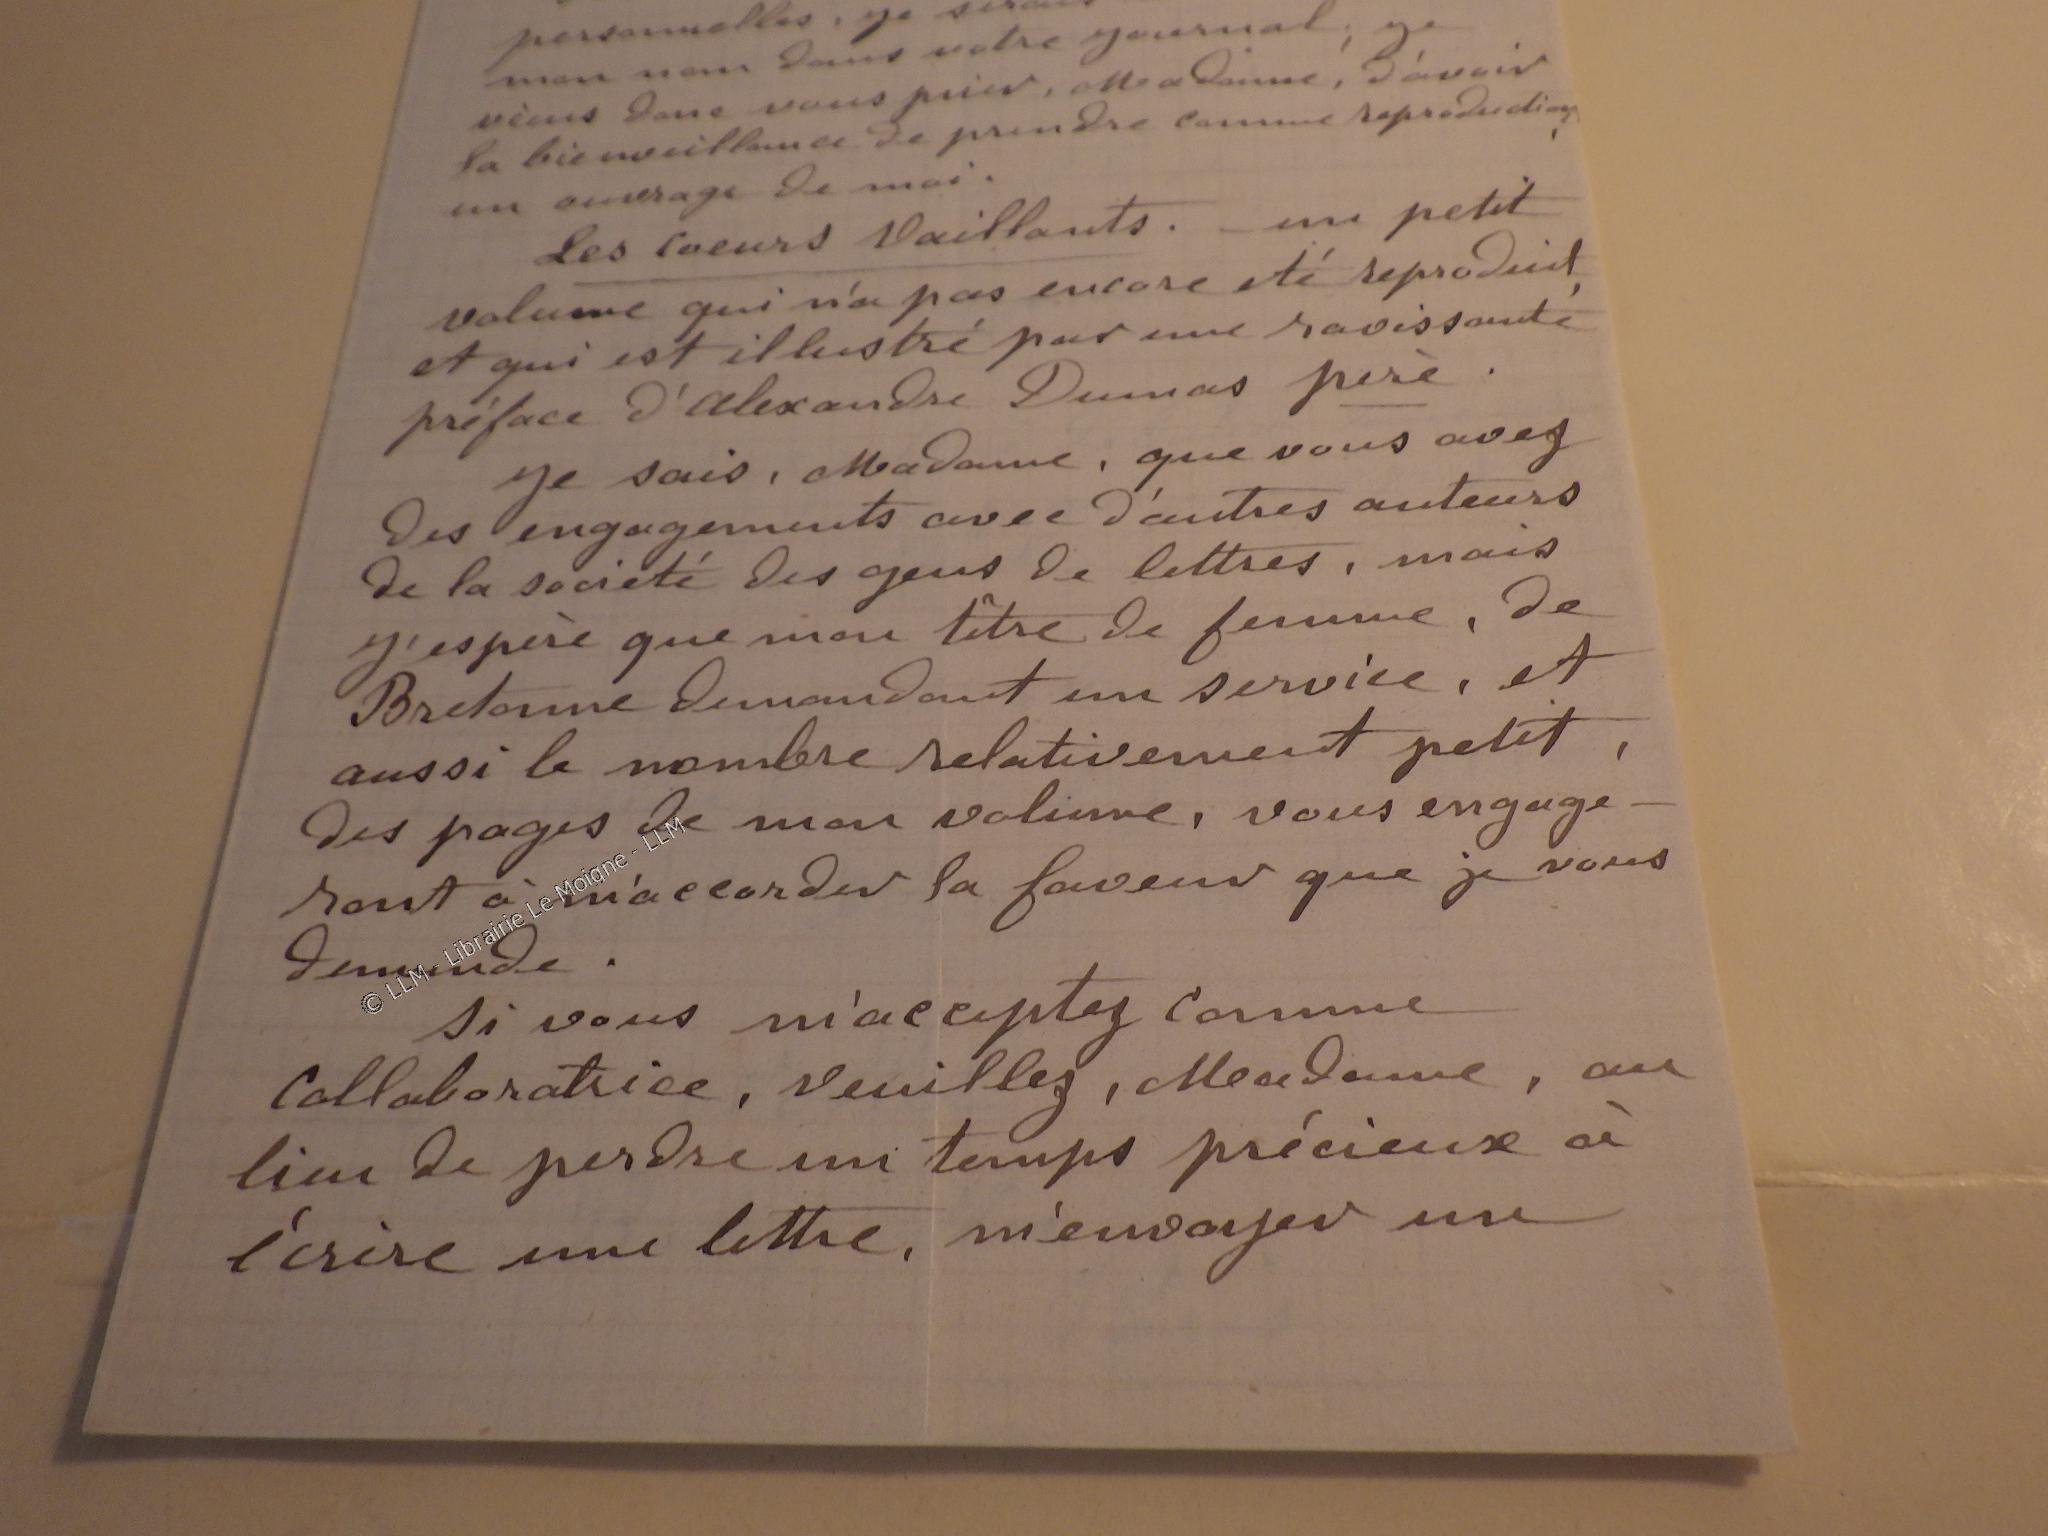 personnelles, je serais
mon nom dans votre journal, je
viens donc vous prier, Madame, d'avoir
la bienveillance de prendre comme reproduction,
un ouvrage de moi.
Les Coeurs Vaillants. - un petit
volume qui n'a pas encore été reproduit,
et qui est illustré par une ravissante
préface d'Alexandre Dumas père.
Je sais, Madame, que vous avez
des engagements avec d'autres auteurs
de la societé des gens de lettres, mais
j'espère que mon tître de femme, de
Bretonne demandant un service, et
aussi le nombre relativement petit,
des pages de mon volume, vous engage-
ront à m'accorder la faveur que je vous
demande.
Si vous m'acceptez comme
Collaboratrice, Veuillez, Madame, au
lieu de perdre un temps précieux à
l'écrire une lettre, m'envoyer un
© LLM - Librairie Le-Moigne - LLM